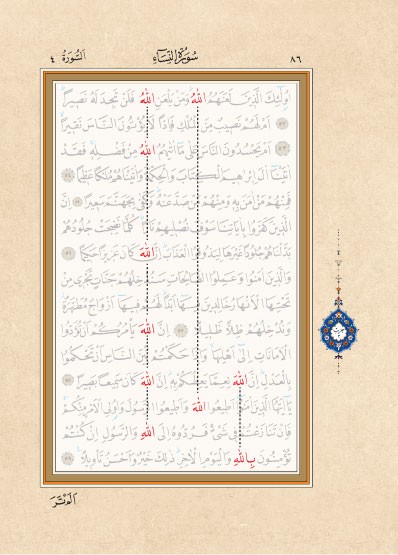 ٨٦ سُورَةُ النِّسَاءِ اَلسُّورَةُ ٤
اُولٰٓئِكَ الَّذِينَ لَعَنَهُمُ اللّٰهُ وَمَنْ يَلْعَنِ اللّٰهُ فَلَنْ تَجِدَ لَهُ نَصِيرًا
٥٢ اَمْ لَهُمْ نَصِيبٌ مِنَ الْمُلْكِ فَاِذًا لَا يُؤْتُونَ النَّاسَ نَقِيرًا
٥٣ اَمْ يَحْسُدُونَ النَّاسَ عَلٰى مَٓا اٰتٰيهُمُ اللّٰهُ مِنْ فَضْلِهٖ فَقَدْ
اٰتَيْنَٓا اٰلَ اِبْرٰهِيمَ الْكِتَابَ وَالْحِكْمَةَ وَاٰتَيْنَاهُمْ مُلْكًا عَظِيمًا ٥٤
فَمِنْهُمْ مَنْ اٰمَنَ بِهٖ وَمِنْهُمْ مَنْ صَدَّ عَنْهُ وَكَفٰى بِجَهَنَّمَ سَعِيرًا ٥٥ اِنَّ
الَّذِينَ كَفَرُوا بِاٰيَاتِنَا سَوْفَ نُصْلِيهِمْ نَارًا كُلَّمَا نَضِجَتْ جُلُودُهُمْ
بَدَّلْنَاهُمْ جُلُودًا غَيْرَهَا لِيَذُوقُوا الْعَذَابَ اِنَّ اللّٰهَ كَانَ عَزِيزًا حَكِيمًا ٥٦
وَالَّذِينَ اٰمَنُوا وَعَمِلُوا الصَّالِحَاتِ سَنُدْخِلُهُمْ جَنَّاتٍ تَجْرِي مِنْ
تَحْتِهَا الْاَنْهَارُ خَالِدِينَ فِيهَٓا اَبَدًا لَهُمْ فِيهَٓا اَزْوَاجٌ مُطَهَّرَةٌ
وَنُدْخِلُهُمْ ظِلًّا ظَلِيلًا ٥٧ اِنَّ اللّٰهَ يَأْمُرُكُمْ اَنْ تُؤَدُّوا
الْاَمَانَاتِ اِلٰٓى اَهْلِهَا وَاِذَا حَكَمْتُمْ بَيْنَ النَّاسِ اَنْ تَحْكُمُوا
بِالْعَدْلِ اِنَّ اللّٰهَ نِعِمَّا يَعِظُكُمْ بِهٖ اِنَّ اللّٰهَ كَانَ سَمِيعًا بَصِيرًا ٥٨
يَٓا اَيُّهَا الَّذِينَ اٰمَنُٓوا اَطِيعُوا اللّٰهَ وَاَطِيعُوا الرَّسُولَ وَاُولِي الْاَمْرِ مِنْكُمْ
فَاِنْ تَنَازَعْتُمْ فِي شَيْءٍ فَرُدُّوهُ اِلَى اللّٰهِ وَالرَّسُولِ اِنْ كُنْتُمْ
تُؤْمِنُونَ بِاللّٰهِ وَالْيَوْمِ الْاٰخِرِ ذٰلِكَ خَيْرٌ وَاَحْسَنُ تَأْوِيلًا ٥٩
اَلَمْ تَرَ